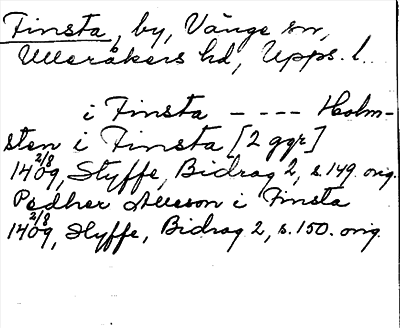 Finsta, by, Vänge sn,
Ulleråkers hd, Upps. l.
i Finsta - - - - Holm-
sten i Finsta [2 ggr]
14 2/8 09, Styffe, Bidrag 2, s. 149. orig.
Pedher Alleson i Finsta
14 2/8 09, Styffe, Bidrag 2, s. 150. orig.